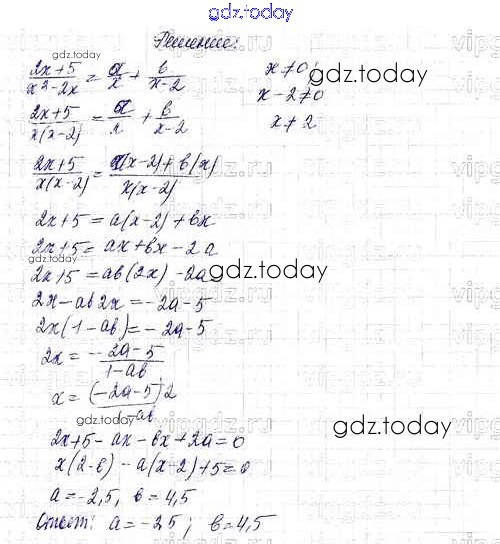 gdz.today
Решение:
gdz.today
(2x+5)/(x²-2x) = a/x + b/(x-2)
x≠0
gdz.today
x-2≠0
(2x+5)/(x(x-2)) = a/x + b/(x-2)
x≠2
(2x+5)/(x(x-2)) = (a(x-2)+b(x))/(x(x-2))
2x+5=a(x-2)+bx
2x+5=ax+bx-2a
gdz.today
2x+5=ab(2x)-2a
gdz.today
2x-ab2x=-2a-5
2x(1-ab)=-2a-5
2x=(-2a-5)/(1-ab)
x=(-2a-5)2/
-ab
gdz.today
2x+5-ax-bx+2a=0
gdz.today
x(2-b)-a(x-2)+5=0
a=-2,5, b=4,5
Ответ: a=-2,5; b=4,5